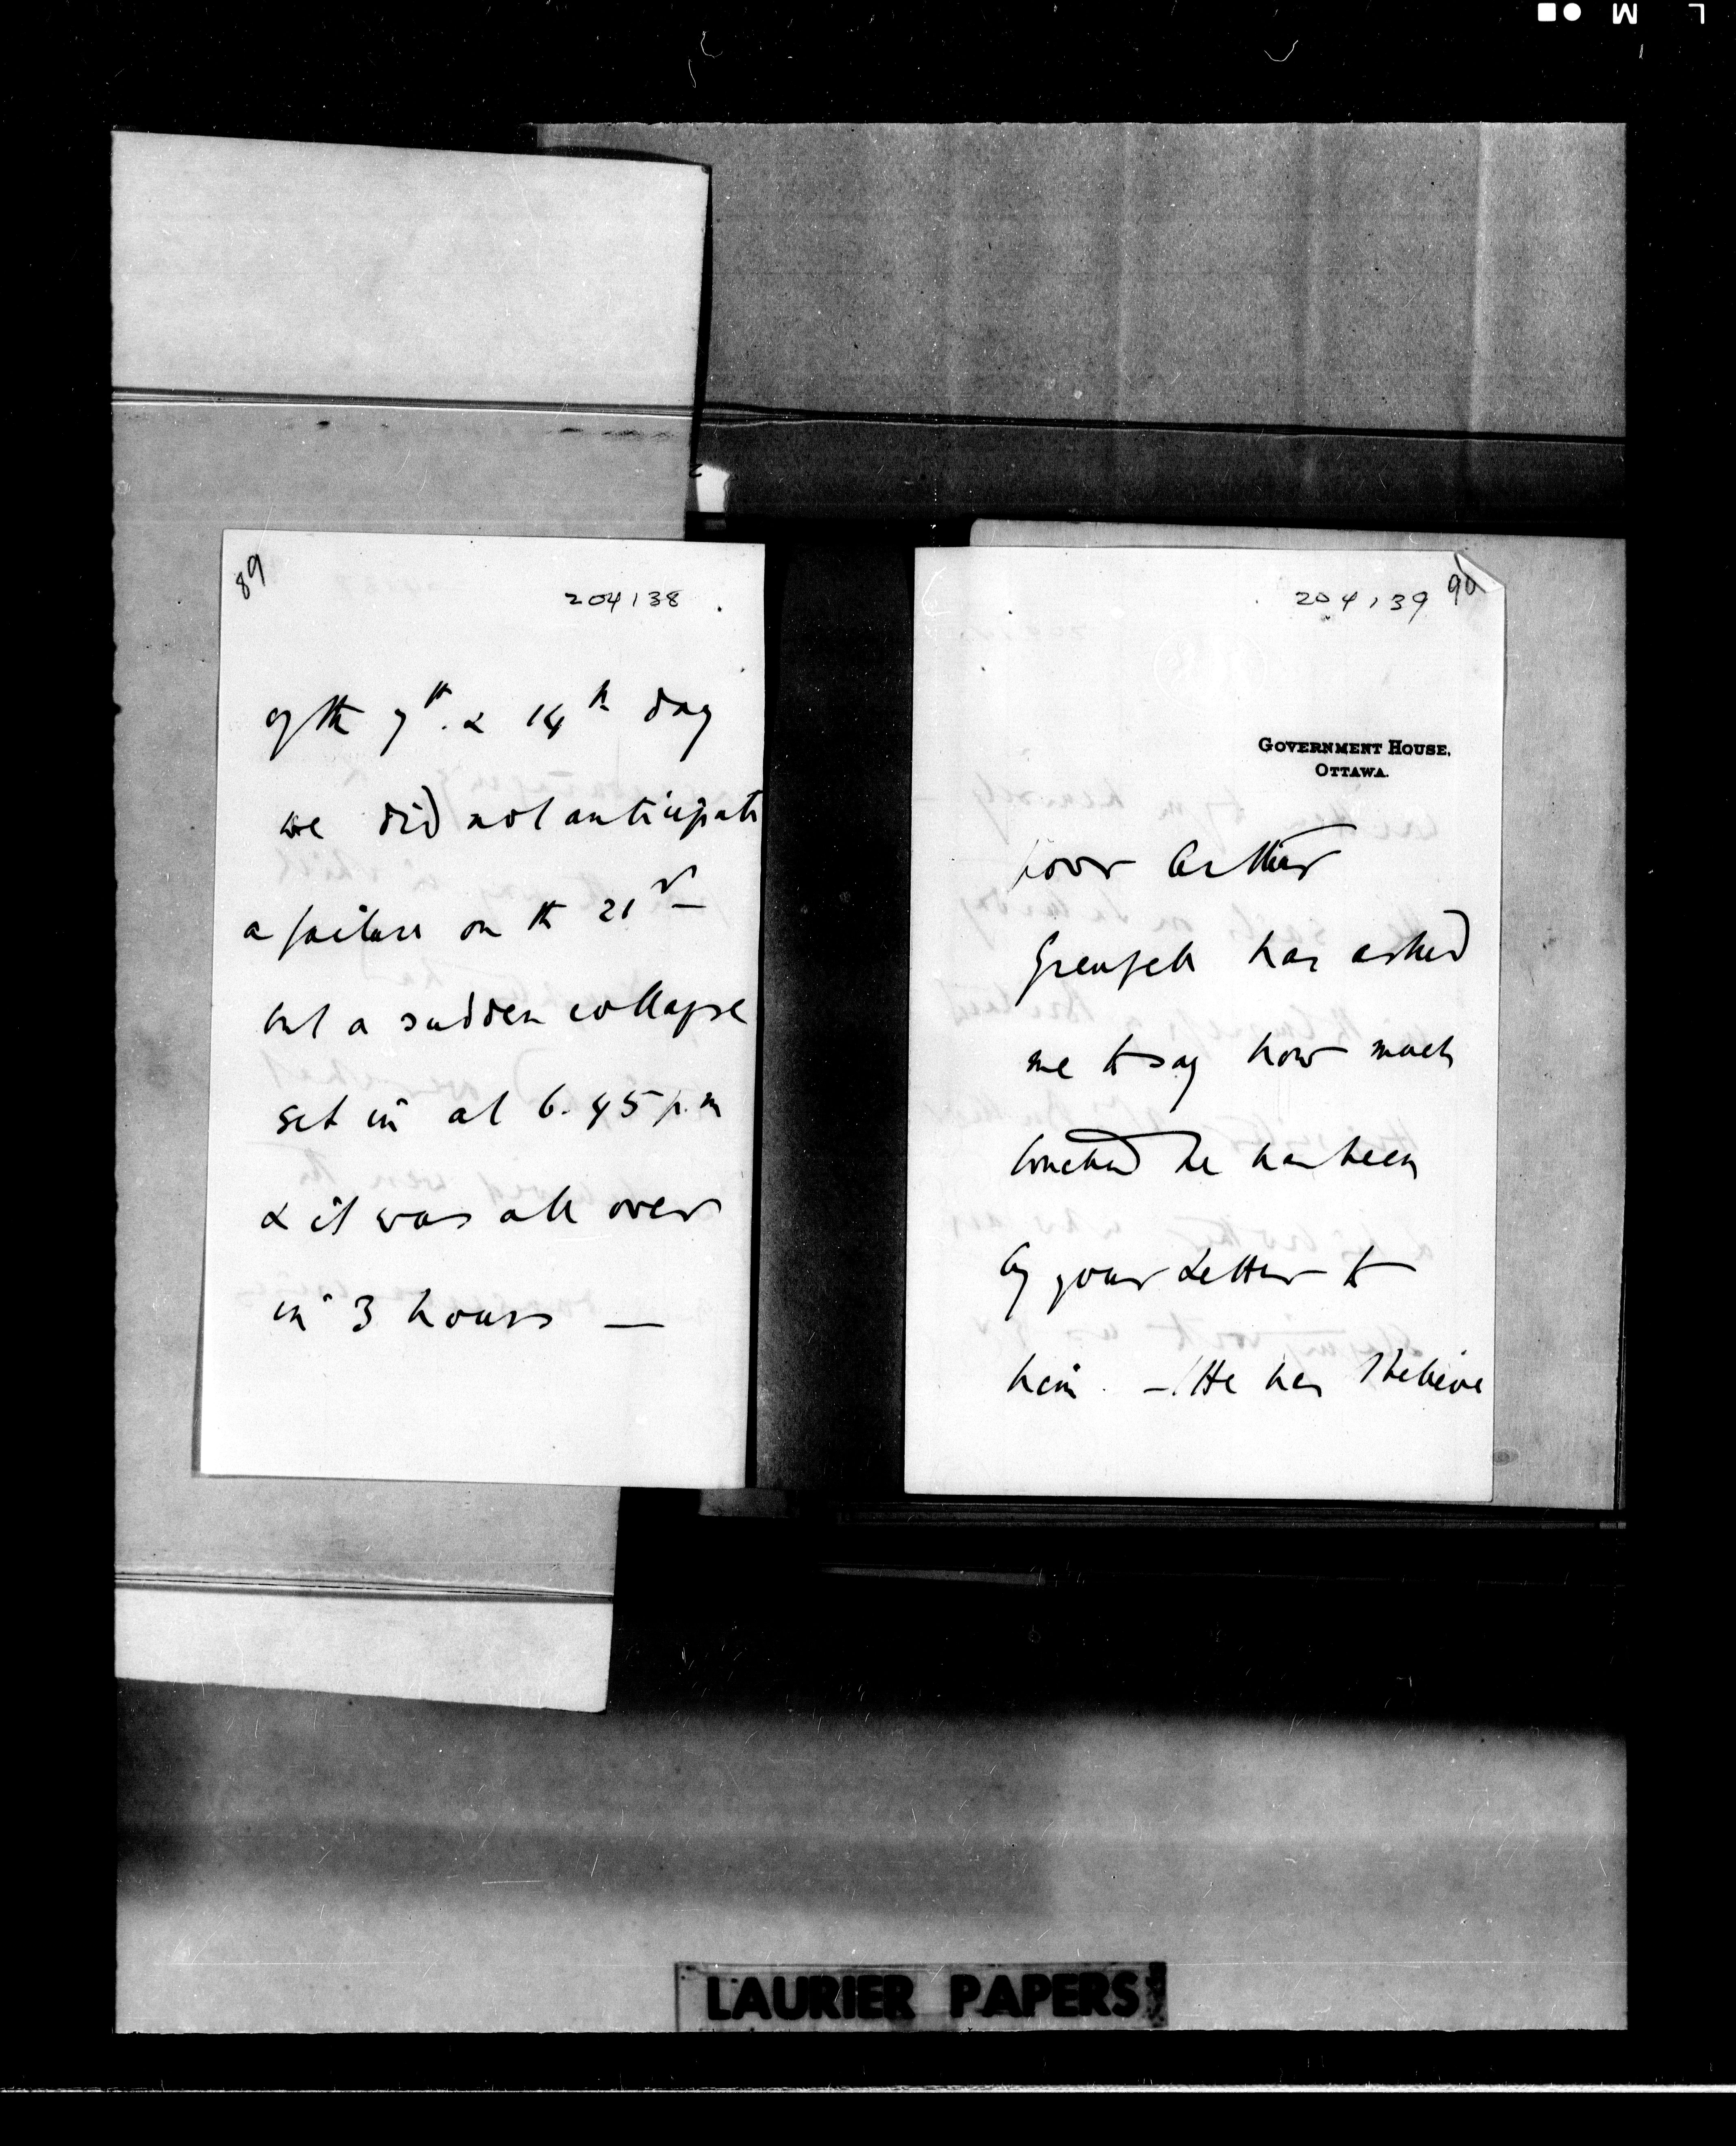 89
204138
of the 7th & 14th day
we did not anticipate
a failure on the 21st
but a sudden collapse
set in at 6.45 p.m
& it was all over
in 3 hours —
204139 90
GOVERNMENT HOUSE,
OTTAWA.
Poor Arthur
Grenfell has asked
me to say how much
touched he has been
by your letter to
him. — He has I believe
LAURIER PAPERS